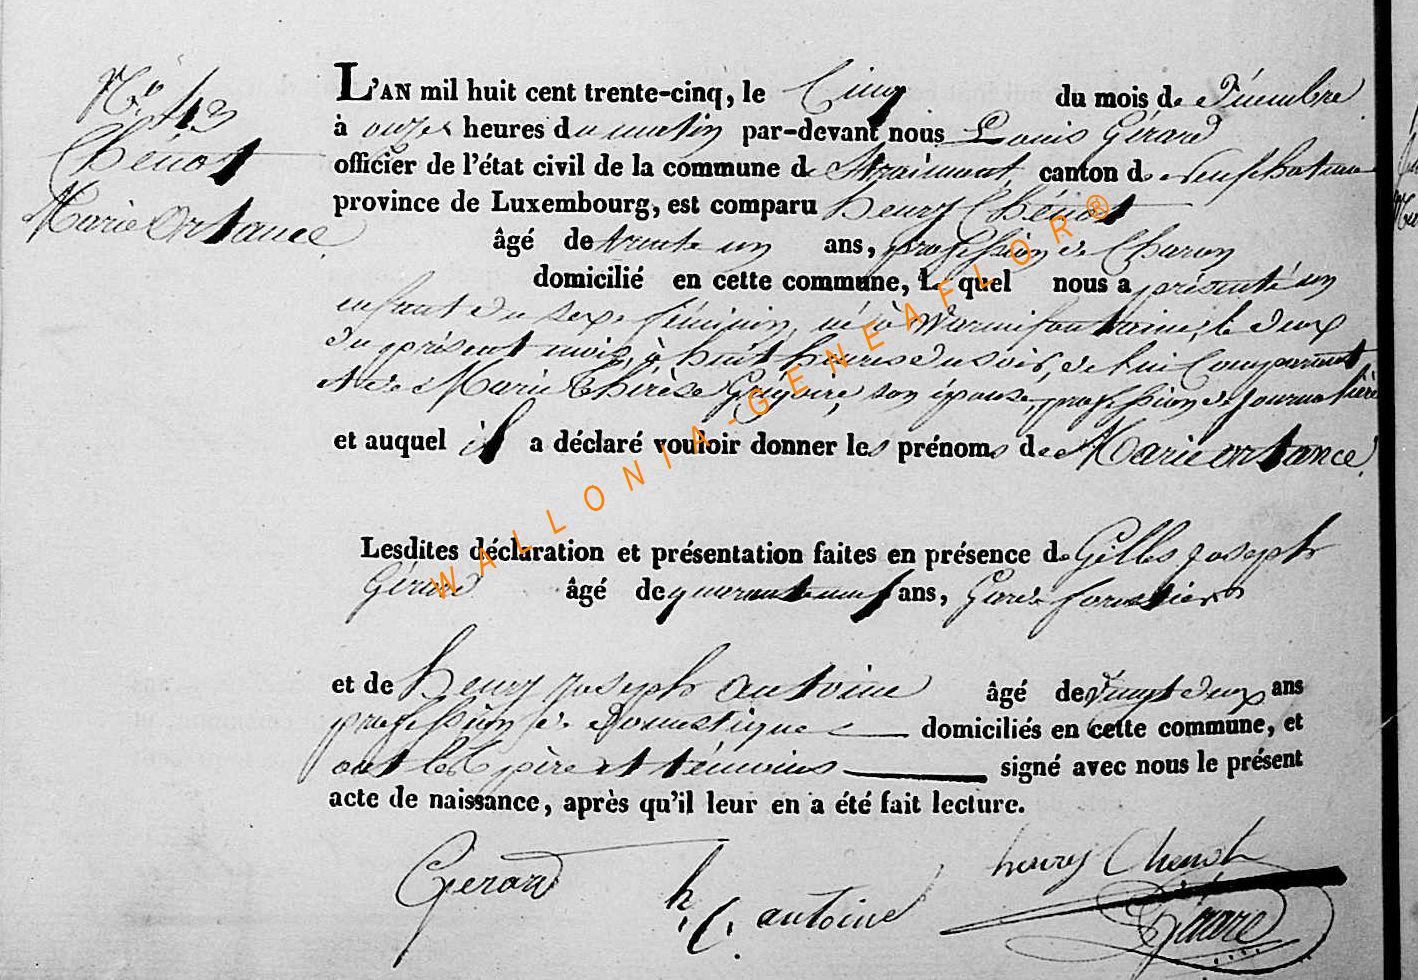 N° 43
Chénot
Marie Ortance
L'AN mil huit cent trente-cinq, le Cinq du mois de Décembre
à onze heures du matin par-devant nous Louis Gérard
officier de l'état civil de la commune de Straimont canton de neufchateau
province de Luxembourg, est comparu henry Chénot
âgé de trente un ans, profession de Charon
domicilié en cette commune, Le quel nous a présenté un
enfant du sexe féminin, né à Warmifontaine, le deux
du présent mois, à huit heures du soir, de lui Comparant
et de Marie Thérèse Grégoire, son épouse, profession de journalière
et auquel il a déclaré vouloir donner les prénoms de Marie ortance
Lesdites déclaration et présentation faites en présence de Gilles joseph
Gérard âgé de quarante neuf ans, Garde forestier
et de henry joseph antoine âgé de vingt deux ans
profession de Domestique domiciliés en cette commune, et
ont les père et témoins signé avec nous le présent
acte de naissance, après qu'il leur en a été fait lecture.
Gerard h. j. antoine henry Chenot
Gérard
WALLONIA-GENEAFLOR®